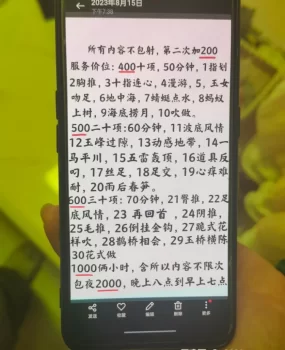 2023年8月15日
下午7:28
所有内容不包射，第二次加200
服务价位：400十项，50分钟，1指划
2胸推，3十指连心，4漫游，5，玉女
吻足，6地中海，7蜻蜓点水，8蚂蚁
上树，9海底捞月，10吹做。
500二十项：60分钟，11波底风情
12玉峰过隙，13动感地带，14一
马平川，15五雷轰顶，16道具反
叼，17丝足，18足交，19心痒难
耐，20雨后春笋。
600三十项：70分钟，21臀推，22足
底风情，23 再回首 ，24阴推，
25毛推，26倒挂金钩，27跪式花
样吹，28鹊桥相会，29玉桥横陈
30花式做
1000俩小时，含所以内容不限次
包夜2000，晚上八点到早上七点
发送
收藏
编辑
删除
更多